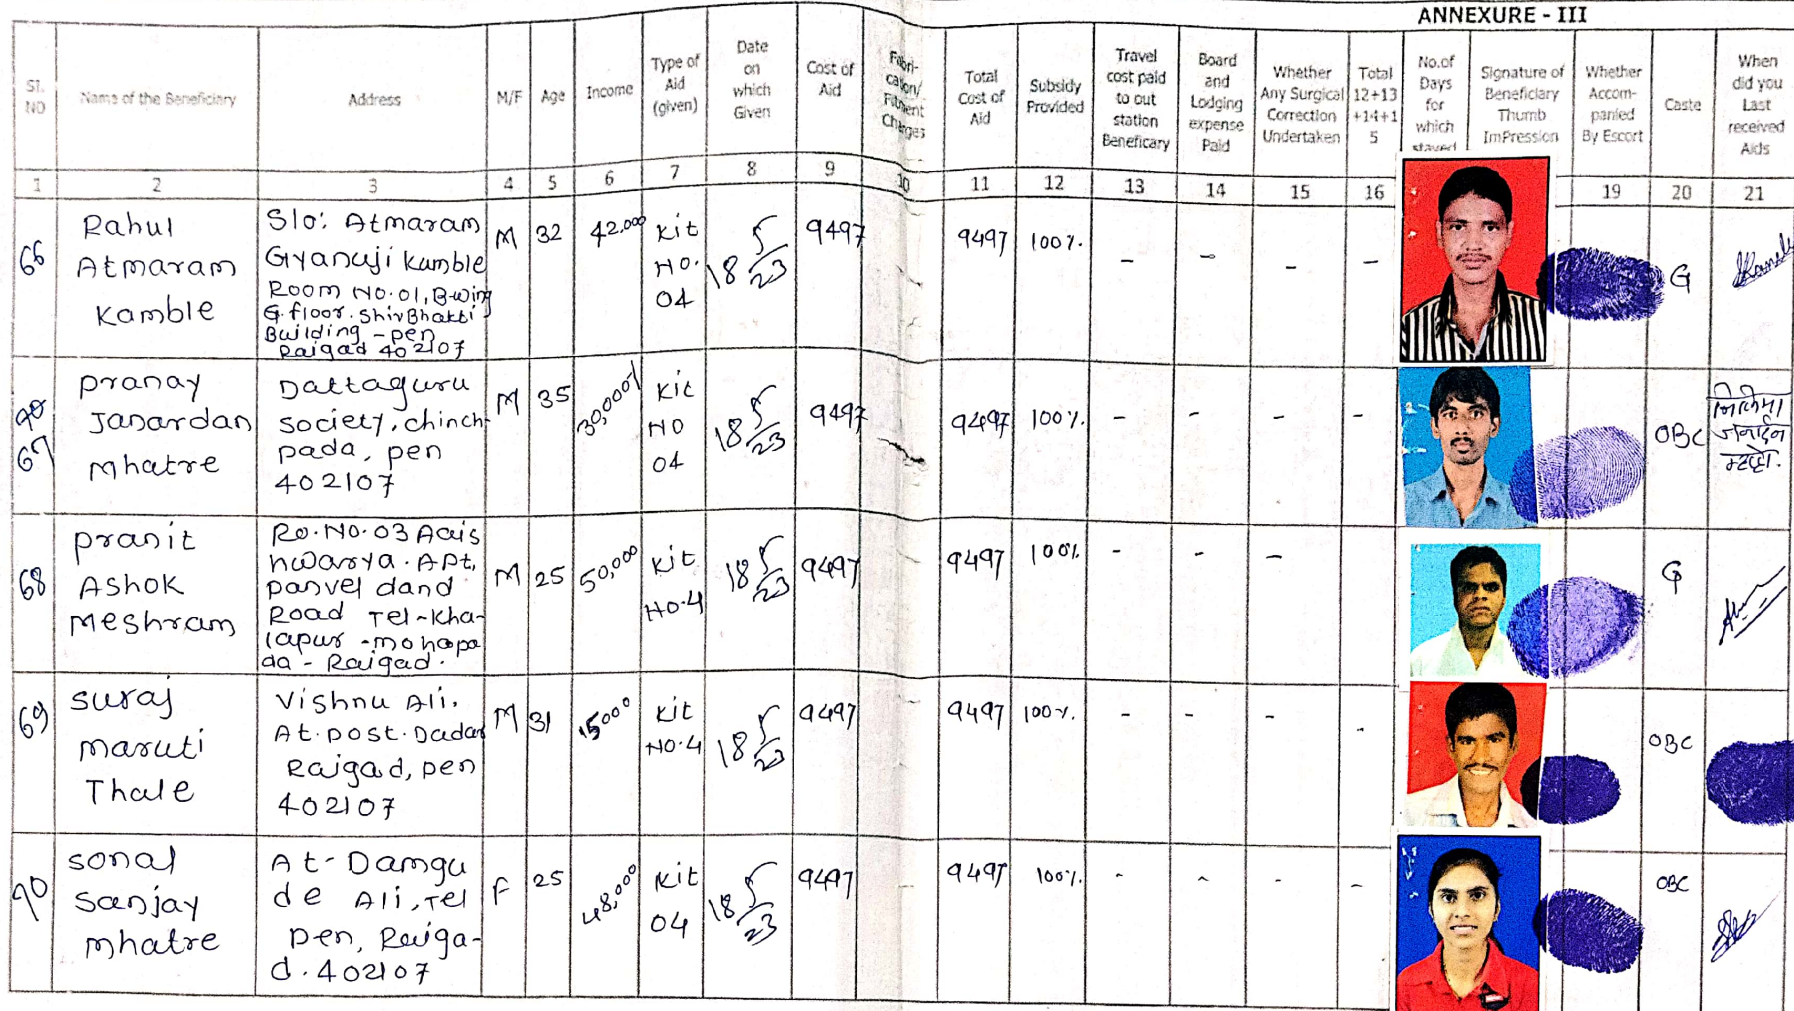 ANNEXURE - III
Sl. NO
Name of the Beneficiary
Address
M/F
Age
Income
Type of Aid (given)
Date on which Given
Cost of Aid
Fabrication/ Fitment Charges
Total Cost of Aid
Subsidy Provided
Travel cost paid to out station Beneficary
Board and Lodging expense Paid
Whether Any Surgical Correction Undertaken
Total 12+13+14+15
No.of Days for which stayed
Signature of Beneficiary Thumb ImPression
Whether Accom-panied By Escort
Caste
When did you Last received Aids
1 2 3 4 5 6 7 8 9 10 11 12 13 14 15 16 19 20 21
66
Rahul
Atmaram
Kamble
S/o: Atmaram
Gyanuji Kamble
Room No.01, B-wing
G.floor. ShivBhakti
Building - pen
Raigad 402107
M 32 42.000
Kit
NO.
04
18 5/23
9497
9497 100%. - - - -
G
67
Pranay
Janardan
Mhatre
Dattaguru
society, chinch
pada, pen
402107
M 35 30,000/
Kit
NO
04
18 5/23
9497
9497 100% - - - -
OBC
निलिमा
जनार्दन
म्हात्रे.
68
Pranit
Ashok
Meshram
Ro.No.03 Aais
hwarya. APt,
panvel dand
Road Tel-Kha-
lapur -mohopa
da - Raigad.
M 25 50,000
Kit
NO.4
18 5/23
9497
9497 100% - - -
G
69
suraj
maruti
Thale
Vishnu Ali.
At.post.Dadar
Raigad, pen
402107
M 31 15000
Kit
NO.4
18 5/23
9497
9497 100%. - - - -
OBC
70
sonal
Sanjay
Mhatre
At- Damgu
de Ali, Tel
pen, Raiga-
d.402107
F 25 48,000
Kit
04
18 5/23
9497
9497 100%. - - - -
OBC